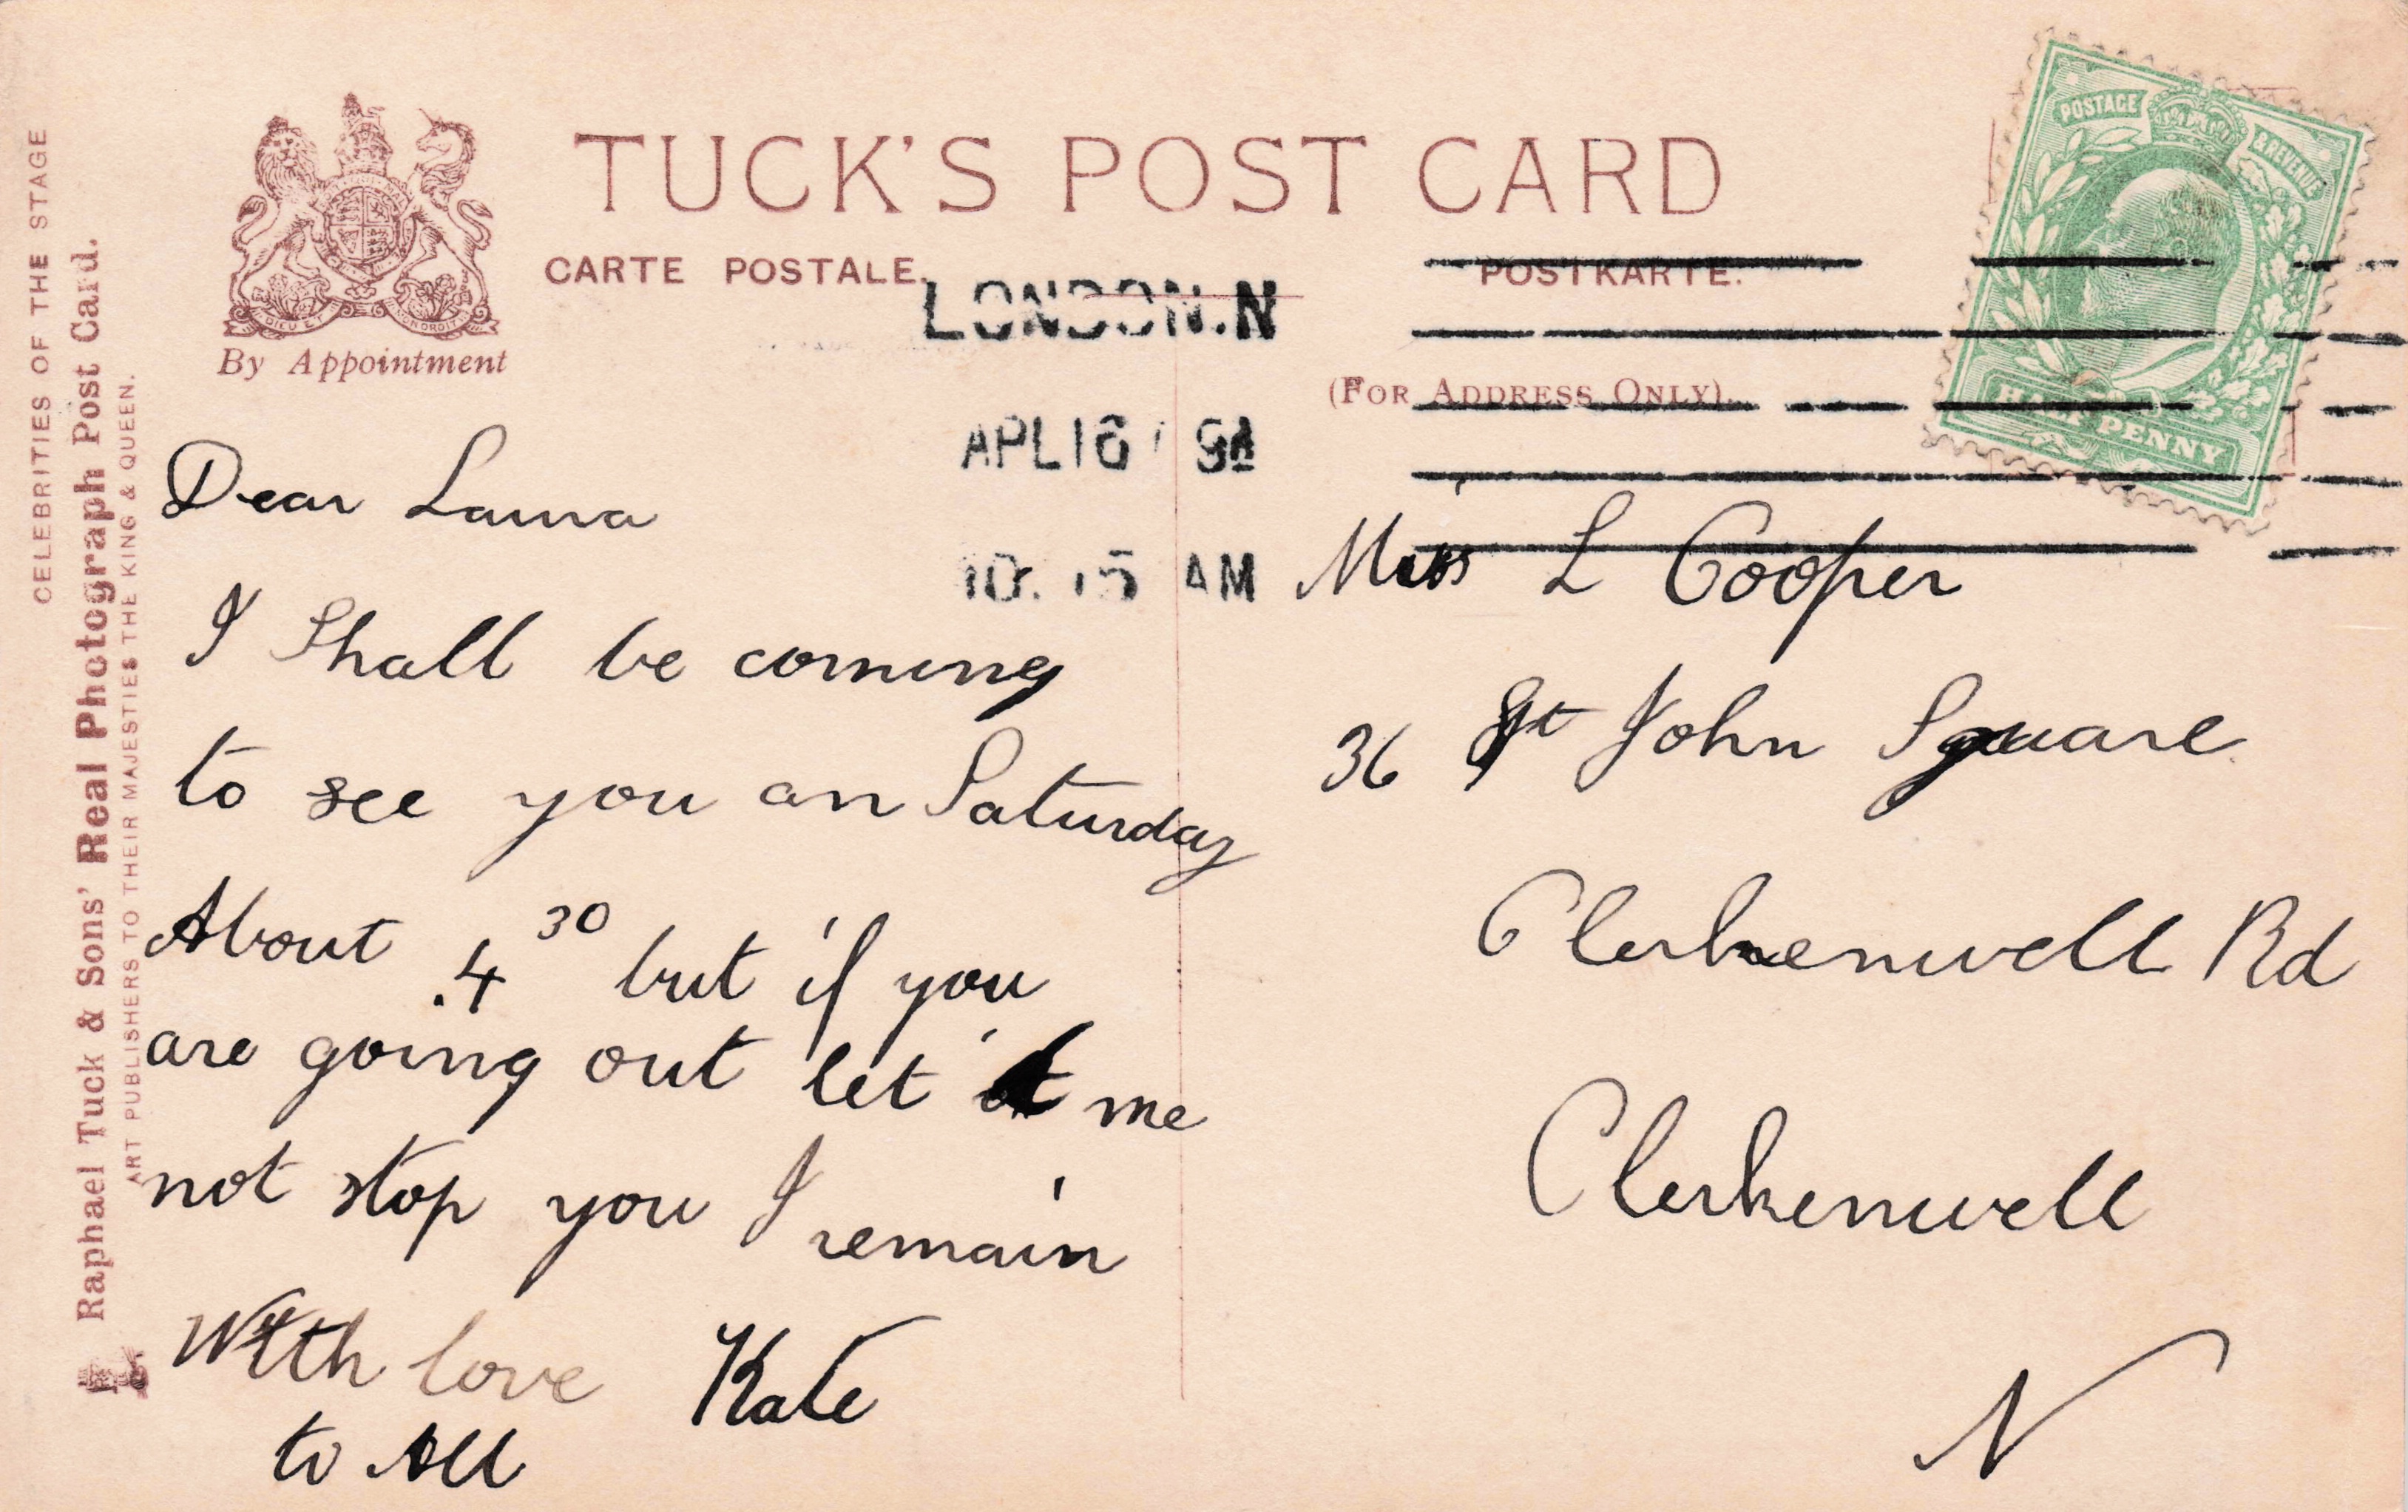 TUCK'S POST CARD
CARTE POSTALE.
POSTKARTE.
By Appointment
(FOR ADDRESS ONLY).
LONDON.N
APL 16
10. 15 AM
POSTAGE & REVENUE
HALF PENNY
CELEBRITIES OF THE STAGE
Raphael Tuck & Sons' Real Photograph Post Card.
ART PUBLISHERS TO THEIR MAJESTIES THE KING & QUEEN.
Dear Laura
I Shall be coming
to see you an Saturday
About .4 30 but if you
are going out let me
not stop you I remain
With love Kate
to All
Miss L Cooper
36 St John Square
Clerkenwell Rd
Clerkenwell
N